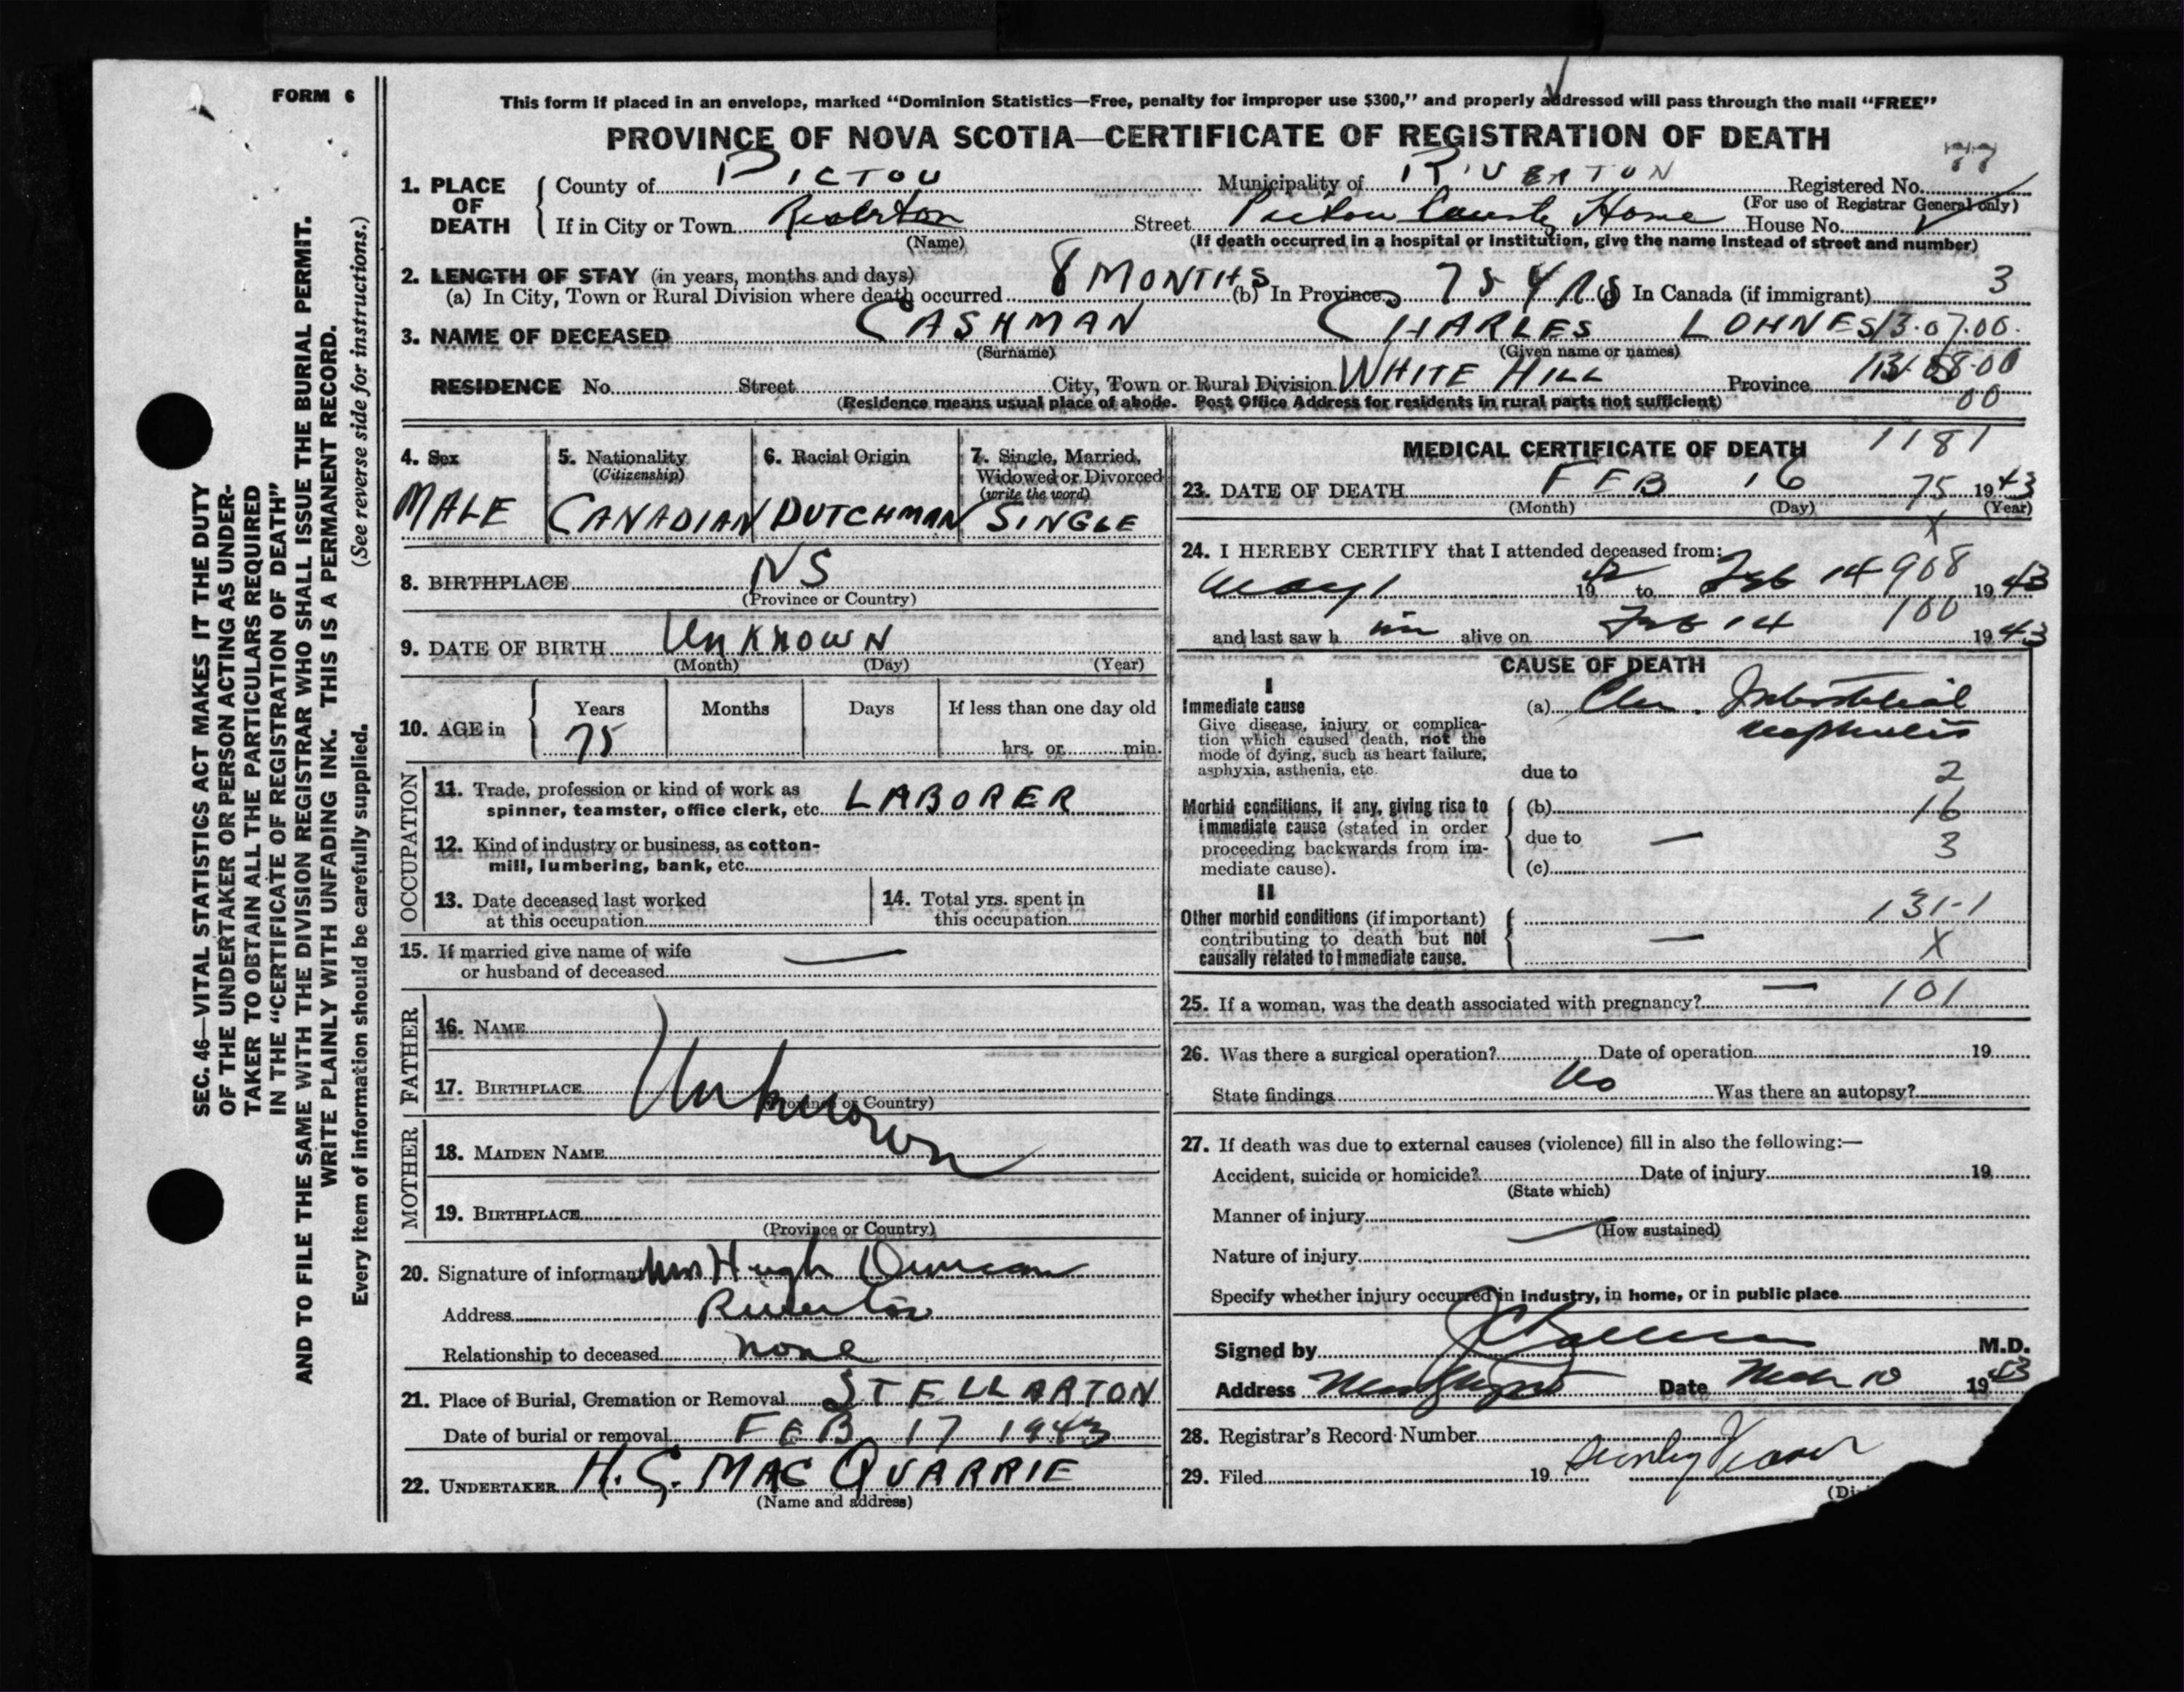 FORM 6
SEC. 46—VITAL STATISTICS ACT MAKES IT THE DUTY
OF THE UNDERTAKER OR PERSON ACTING AS UNDER-
TAKER TO OBTAIN ALL THE PARTICULARS REQUIRED
IN THE "CERTIFICATE OF REGISTRATION OF DEATH"
AND TO FILE THE SAME WITH THE DIVISION REGISTRAR WHO SHALL ISSUE THE BURIAL PERMIT.
WRITE PLAINLY WITH UNFADING INK. THIS IS A PERMANENT RECORD.
Every item of information should be carefully supplied. (See reverse side for instructions.)
This form if placed in an envelope, marked "Dominion Statistics—Free, penalty for improper use $300," and properly addressed will pass through the mail "FREE"
PROVINCE OF NOVA SCOTIA—CERTIFICATE OF REGISTRATION OF DEATH
77
1. PLACE OF DEATH County of PICTOU Municipality of RIVERTON Registered No.
(For use of Registrar General only)
If in City or Town Riverton Street Pictou County Home House No.
(Name) (If death occurred in a hospital or institution, give the name instead of street and number)
2. LENGTH OF STAY (in years, months and days)
(a) In City, Town or Rural Division where death occurred 8 MONTHS (b) In Province 75 YRS (c) In Canada (if immigrant) 3
3. NAME OF DECEASED CASHMAN CHARLES LOHNES 13.07.00.
(Surname) (Given name or names)
RESIDENCE No. Street City, Town or Rural Division WHITE HILL Province 13.08.00
(Residence means usual place of abode. Post Office Address for residents in rural parts not sufficient) 00
4. Sex 5. Nationality (Citizenship) 6. Racial Origin 7. Single, Married, Widowed or Divorced (write the word)
MALE CANADIAN DUTCHMAN SINGLE
8. BIRTHPLACE NS
(Province or Country)
9. DATE OF BIRTH UNKNOWN
(Month) (Day) (Year)
10. AGE in Years Months Days If less than one day old
75 hrs. or min.
OCCUPATION
11. Trade, profession or kind of work as
spinner, teamster, office clerk, etc. LABORER
12. Kind of industry or business, as cotton-
mill, lumbering, bank, etc.
13. Date deceased last worked
at this occupation
14. Total yrs. spent in
this occupation
15. If married give name of wife
or husband of deceased —
FATHER
16. NAME
17. BIRTHPLACE
Unknown
(Province or Country)
MOTHER
18. MAIDEN NAME
19. BIRTHPLACE
(Province or Country)
20. Signature of informant Mrs Hugh Duncan
Address Riverton
Relationship to deceased none
21. Place of Burial, Cremation or Removal STELLARTON
Date of burial or removal FEB 17 1943
22. UNDERTAKER H. G. MACQUARRIE
(Name and address)
MEDICAL CERTIFICATE OF DEATH 1181
23. DATE OF DEATH FEB 16 75 1943
(Month) (Day) (Year)
X
24. I HEREBY CERTIFY that I attended deceased from:
May 1 1942 to Feb 14 908 1943
and last saw him alive on Feb 14 100 1943
CAUSE OF DEATH
I
Immediate cause
Give disease, injury or complica-
tion which caused death, not the
mode of dying, such as heart failure,
asphyxia, asthenia, etc.
(a) Chr. Interstitial
nephritis
due to 2
Morbid conditions, if any, giving rise to
immediate cause (stated in order
proceeding backwards from im-
mediate cause).
(b) 16
due to — 3
(c)
II
Other morbid conditions (if important)
contributing to death but not
causally related to immediate cause.
131-1
— X
25. If a woman, was the death associated with pregnancy? — 101
26. Was there a surgical operation? Date of operation 19
State findings No Was there an autopsy?
27. If death was due to external causes (violence) fill in also the following:—
Accident, suicide or homicide? Date of injury 19
(State which)
Manner of injury
(How sustained)
Nature of injury —
Specify whether injury occurred in industry, in home, or in public place
Signed by M.D.
Address New Glasgow Date Mch 10 1943
28. Registrar's Record Number
29. Filed 19
(Di